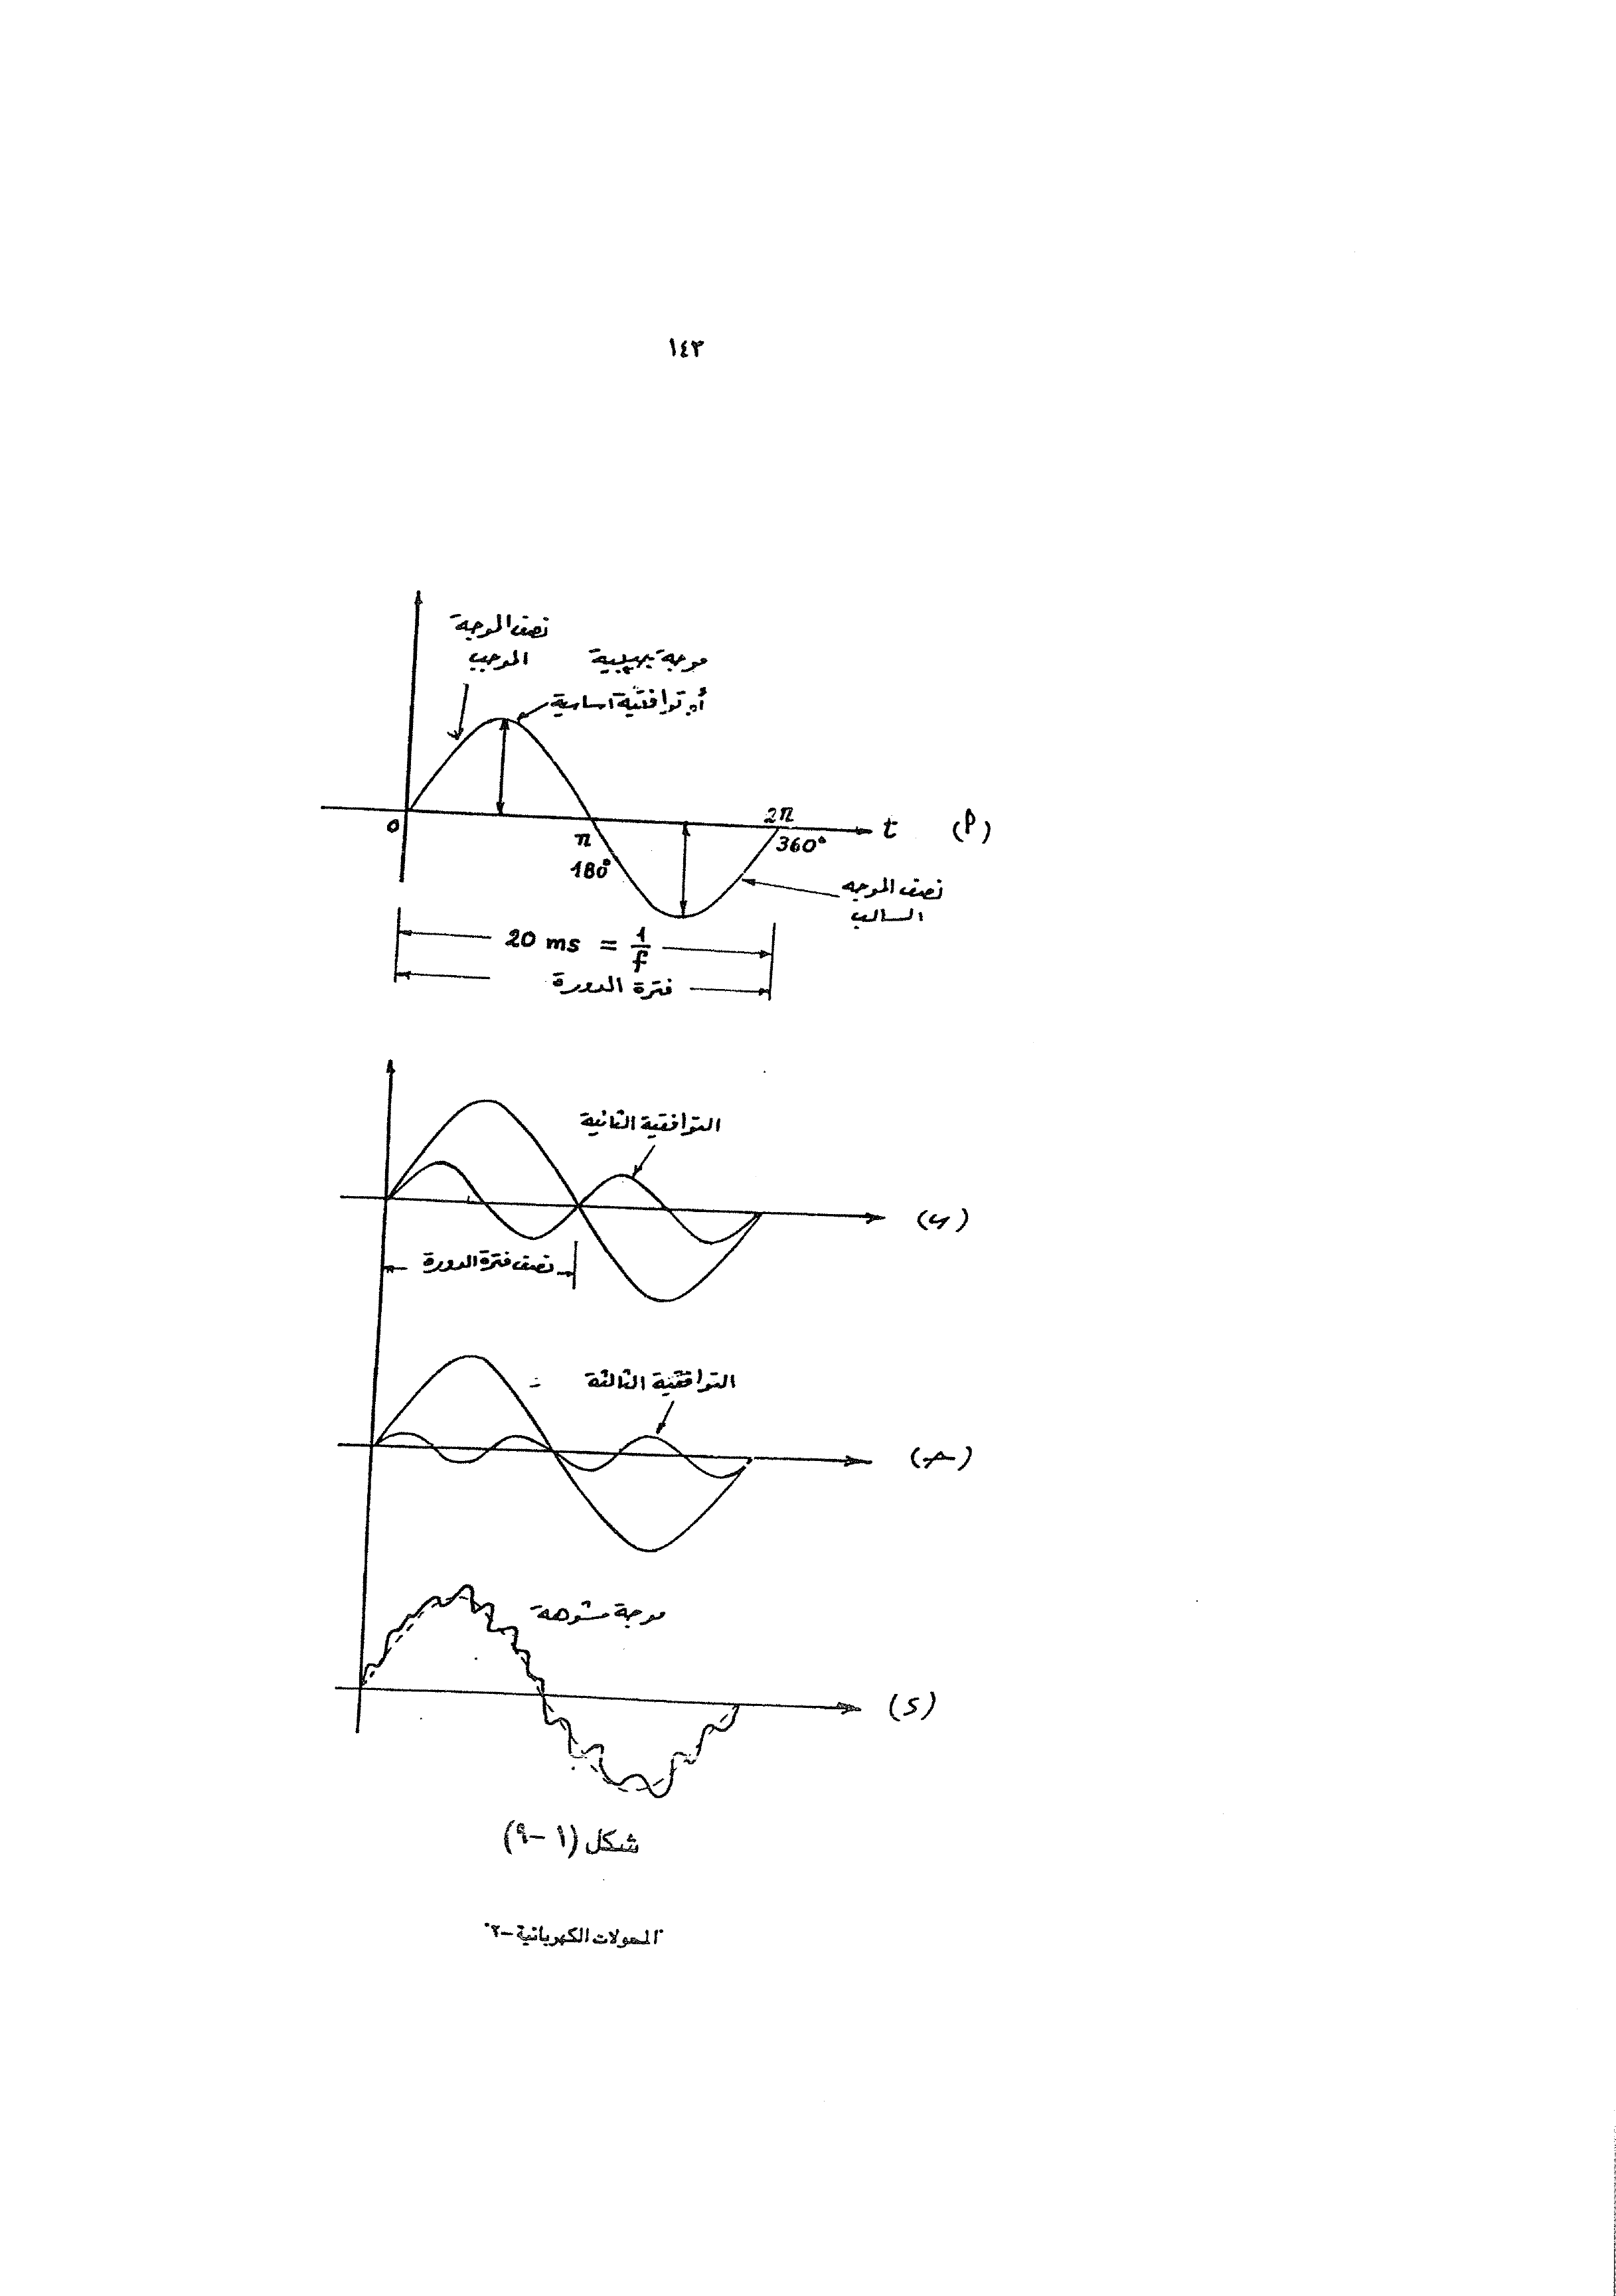 ١٤٣
نصف الموجة
الموجب
موجة جيبية
أو توافقية اساسية
0
π
180°
2π
360°
t
(أ)
نصف الموجه
السالب
20 ms = 1/f
فترة الدورة
التوافقية الثانية
(ب)
نصف فترة الدورة
التوافقية الثالثة
(ج)
موجة مشوهة
(د)
شكل (١-٩)
"المحولات الكهربائية-٢"